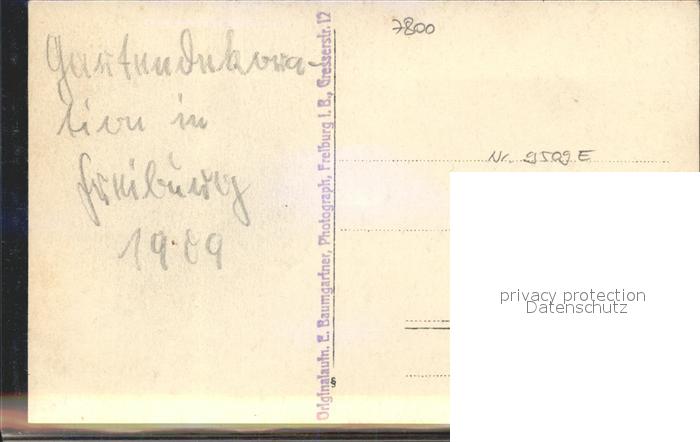 Gartendekora-
tion in
Freiburg
1909
Originalaufn. E. Baumgartner, Photograph, Freiburg i. B., Gresserstr. 12
§
7800
Nr. 9509 E
privacy protection
Datenschutz